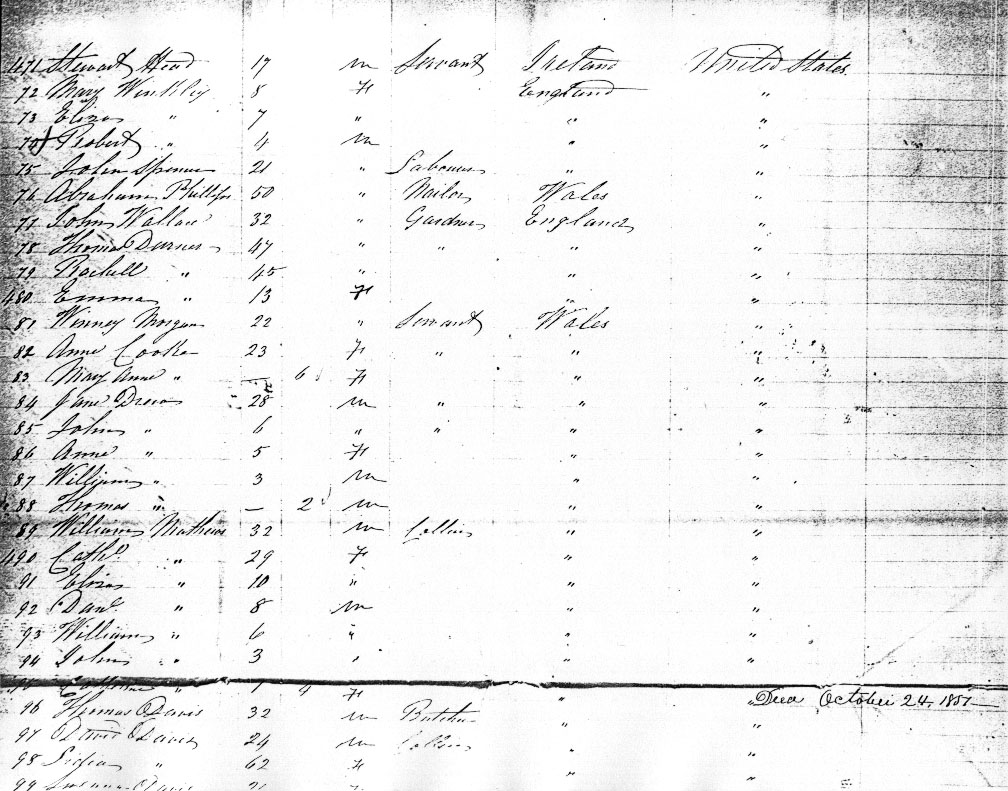 471 Stewart Head 17 m Servant Ireland United States
72 Mary Winkley 8 F England "
73 Eliza " 7 " " "
74 Robert " 4 m " "
75 John Spencer 21 " Labourer " "
76 Abraham Phillips 50 " Nailor Wales "
77 John Wallace 32 " Gardner England "
78 Thomas Durner 47 " " " "
79 Rachell " 45 " " "
480 Emma " 13 F " "
81 Winney Morgan 22 " Servant Wales "
82 Anne Cooke 23 F " " "
83 Mary Anne " — 6 F " "
84 Jane Drew 28 m " " "
85 John " 6 " " " "
86 Anne " 5 F " "
87 William " 3 m " "
88 Thomas " — 2 m " "
89 William Mathews 32 m Collier " "
490 Cath. " 29 F " "
91 Eliza " 10 " " "
92 Danl. " 8 m " "
93 William " 6 " " "
94 John " 3 " " "
95 " 1 4 F " " Died October 24, 1851
96 Thomas Davis 32 m Butcher " "
97 David Davis 24 m Collier " "
98 " 62 F " "
99 Davis